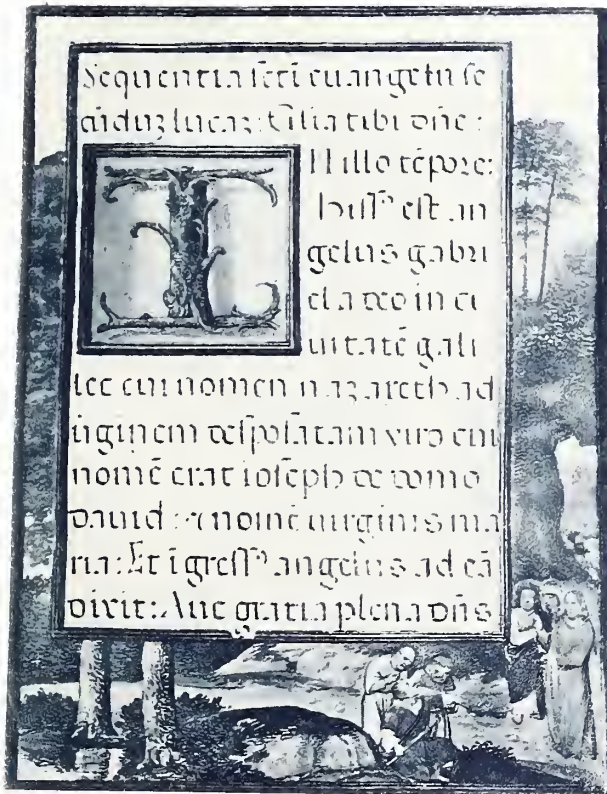 Sequentia scti euangelii se
cūduz lucaz: Glia tibi dñe:
IN illo tēpore:
Missꝰ est an
gelus gabri
el a deo in ci
uitatē gali
lee cui nomen nazareth ad
ūginem desponsatam viro cui
nomē erat ioseph de domo
dauid: ⁊ nomē uirginis ma
ria: Et īgressꝰ angelus ad eā
dixit: Aue gratia plena dñs